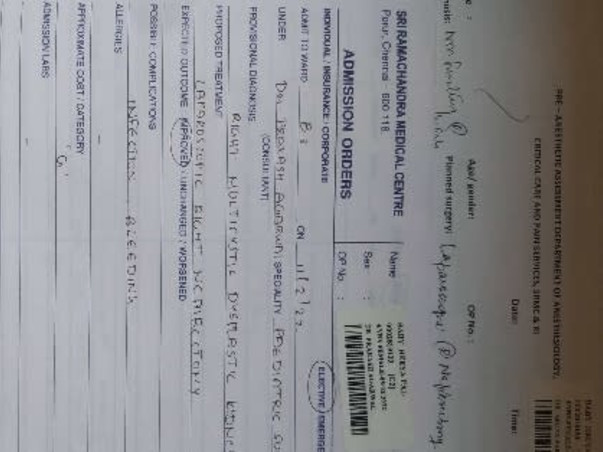 PRE - ANAESTHETIC ASSESSMENT DEPARTMENT OF ANESTHESIOLOGY,
CRITICAL CARE AND PAIN SERVICES, SRMC & RI
Date: Time:
Age/ gender: OP No. :
Planned surgery: Laparoscopic (R) Nephrectomy
SRI RAMACHANDRA MEDICAL CENTRE
Porur, Chennai 600 116.
Name
Sex :
OP No. :
ADMISSION ORDERS
INDIVIDUAL / INSURANCE / CORPORATE
ELECTIVE / EMERGE
ADMIT TO WARD B2 ON 11/2/22
UNDER DR. PRAKASH AGARWAL SPECIALITY PEDIATRIC SU
(CONSULTANT)
PROVISIONAL DIAGNOSIS
RIGHT MULTICYSTIC DYSPLASTIC KIDNE
PROPOSED TREATMENT
LAPAROSCOPIC RIGHT NEPHRECTOMY
EXPECTED OUTCOME : IMPROVED / UNCHANGED / WORSENED
POSSIBLE COMPLICATIONS
INFECTION BLEEDING
ALLERGIES
APPROXIMATE COST / CATEGORY
"G"
ADMISSION LABS